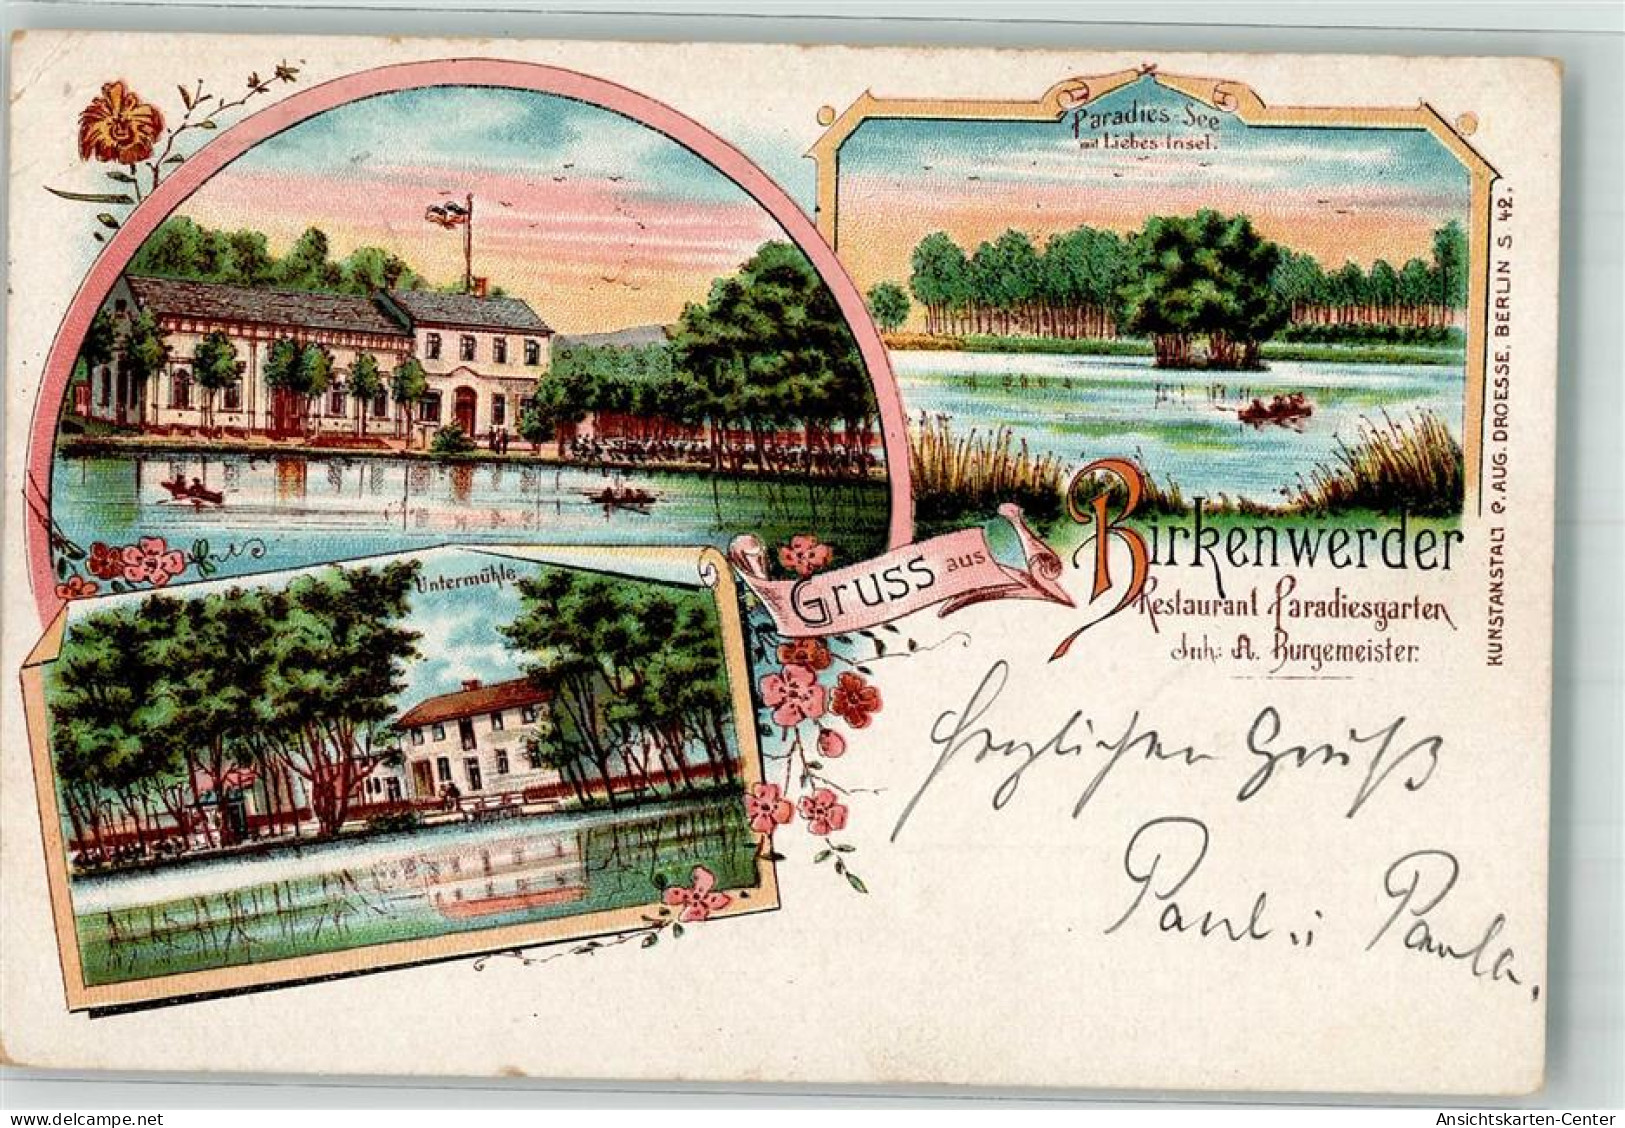 Paradies-See
mit Liebes-Insel.
Untermühle
Gruss aus
Birkenwerder
Restaurant Paradiesgarten
Inh: A. Burgemeister.
KUNSTANSTALT v. AUG. DROESSE, BERLIN S 42.
Herzlichen Gruß
Paul u Paula.
delcampe.net/collections/DE_Ansichtskarten_Center
Ansichtskarten-Center